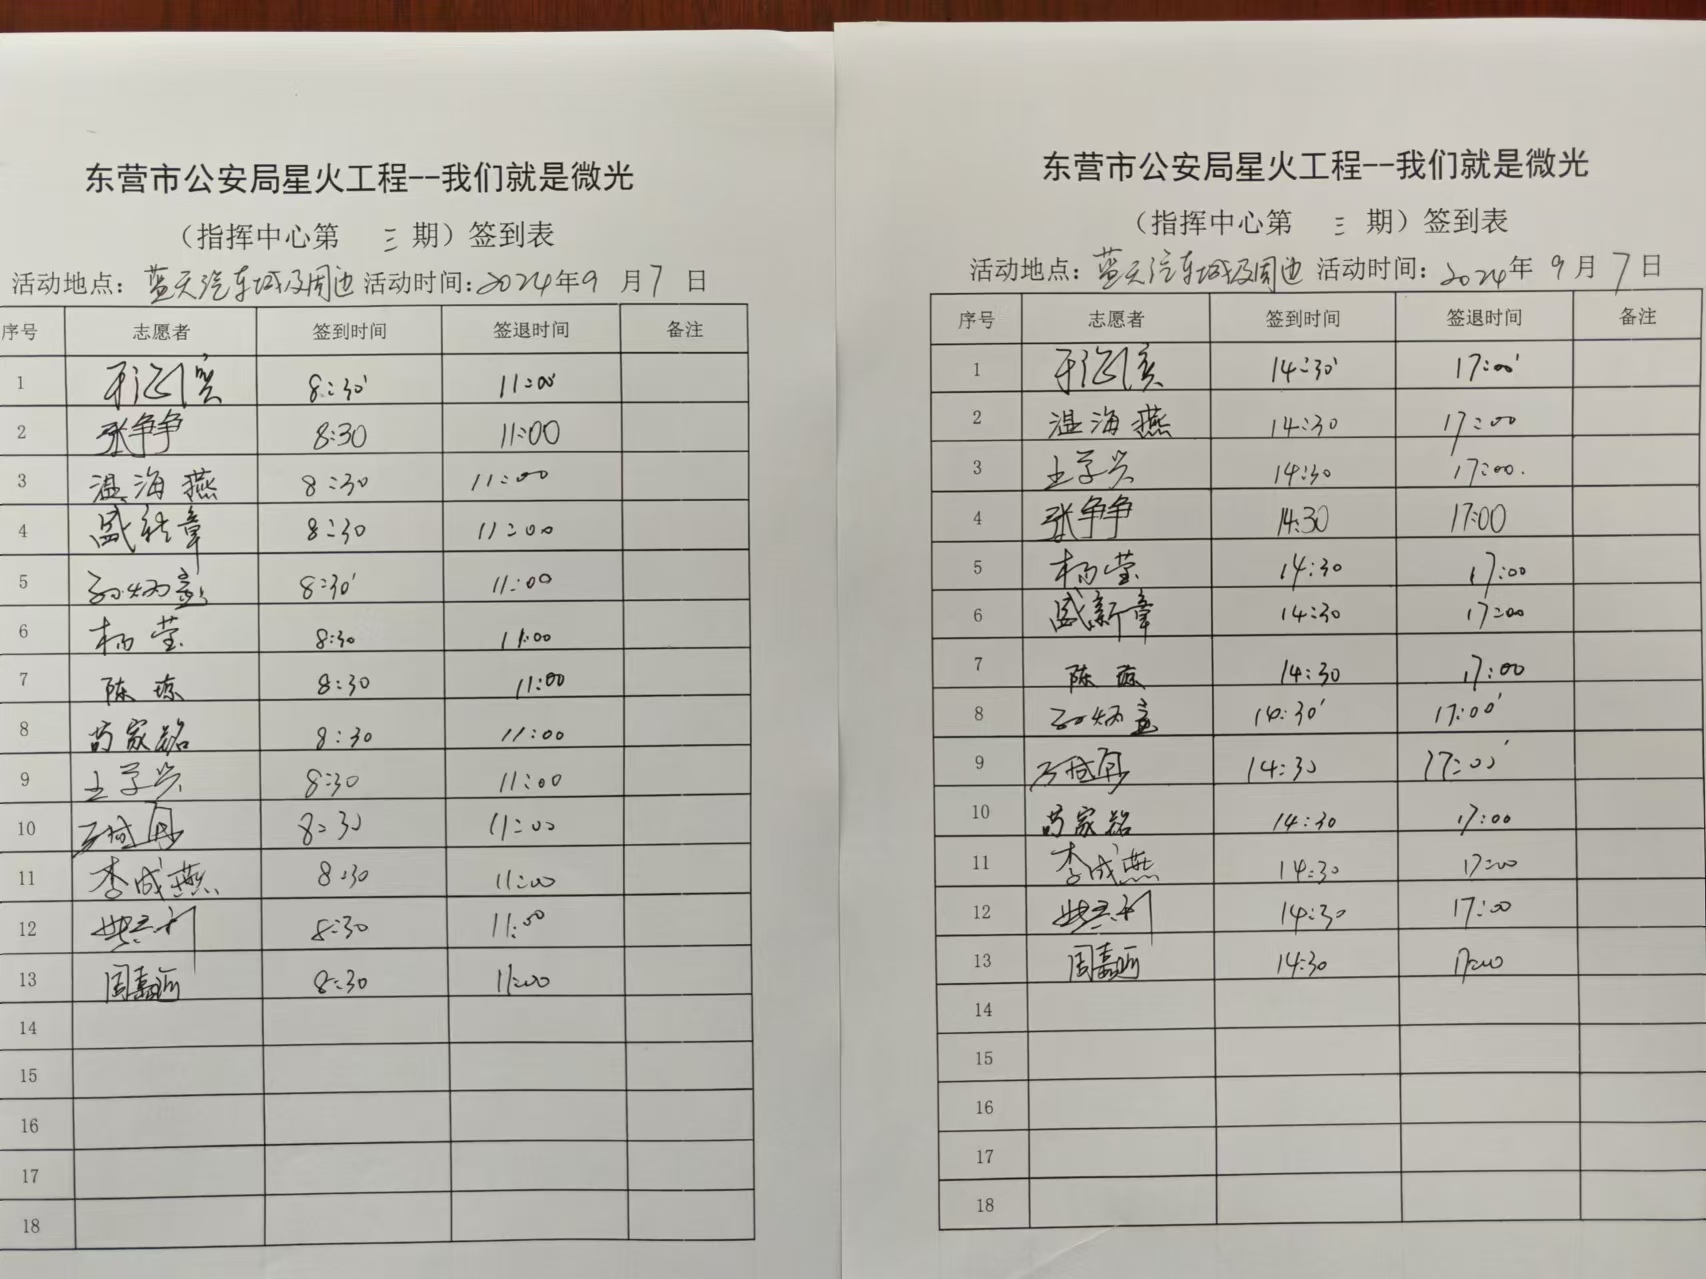 东营市公安局星火工程--我们就是微光
（指挥中心第 三 期）签到表
活动地点：蓝天汽车城及周边 活动时间：2024年9月7日
序号 志愿者 签到时间 签退时间 备注
1 8:30' 11:00'
2 张争争 8:30 11:00
3 温海燕 8:30 11:00
4 盛新章 8:30 11:00
5 8:30' 11:00
6 杨莹 8:30 11:00
7 陈琼 8:30 11:00
8 苟家铭 8:30 11:00
9 王学兴 8:30 11:00
10 8:30 11:00
11 李成燕 8:30 11:00
12 8:30 11:00
13 周嘉 8:30 11:00
14
15
16
17
18
东营市公安局星火工程--我们就是微光
（指挥中心第 三 期）签到表
活动地点：蓝天汽车城及周边 活动时间：2024年9月7日
序号 志愿者 签到时间 签退时间 备注
1 14:30' 17:00'
2 温海燕 14:30 17:00
3 王学兴 14:30 17:00.
4 张争争 14:30 17:00
5 杨莹 14:30 17:00
6 盛新章 14:30 17:00
7 陈琼 14:30 17:00
8 14:30' 17:00'
9 14:30 17:00'
10 苟家铭 14:30 17:00
11 李成燕 14:30 17:00
12 14:30 17:00
13 周嘉 14:30 17:00
14
15
16
17
18